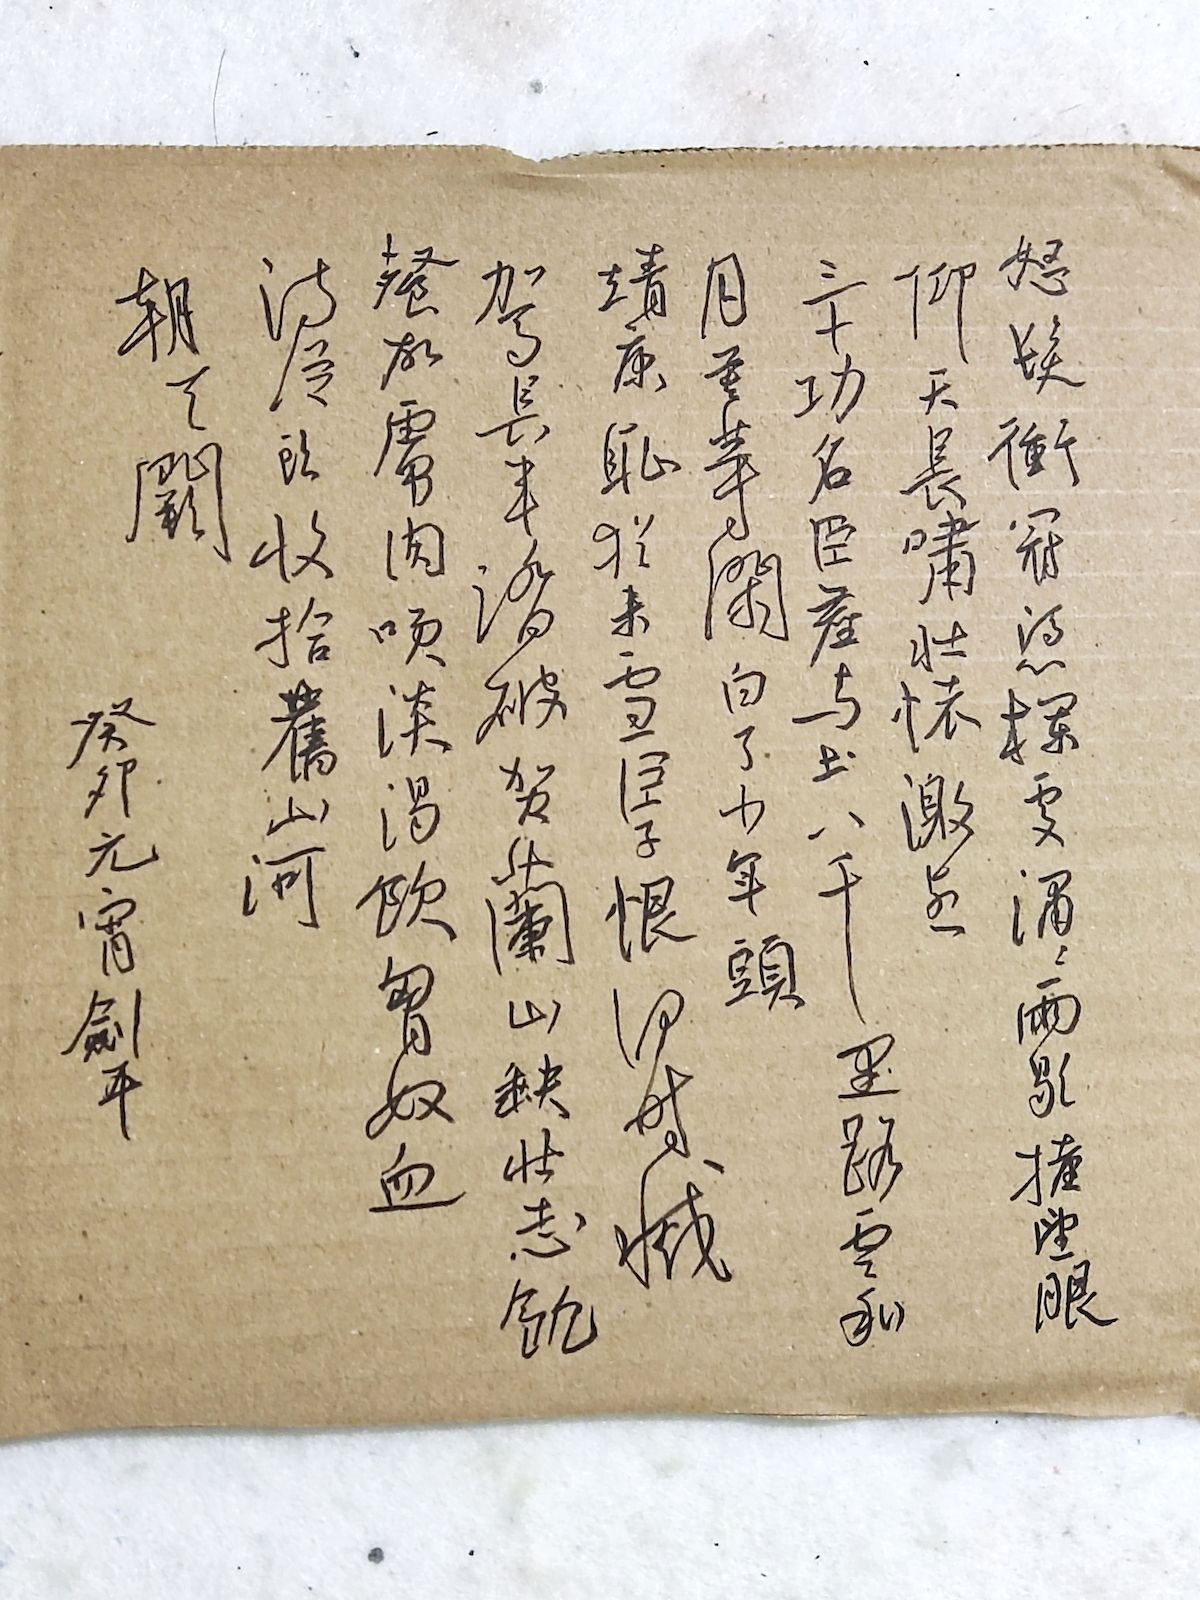 怒髮衝冠憑欄處瀟〻雨歇擡望眼
仰天長嘯壯懷激烈
三十功名臣塵与土八千里路雲和
月莫等閑白了少年頭
靖康恥猶未雪臣子恨何時滅
駕長車踏破賀蘭山缺壯志飢
餐胡虜肉笑談渴飲匈奴血
待從頭收拾舊山河
朝天闕
癸卯元宵劍平